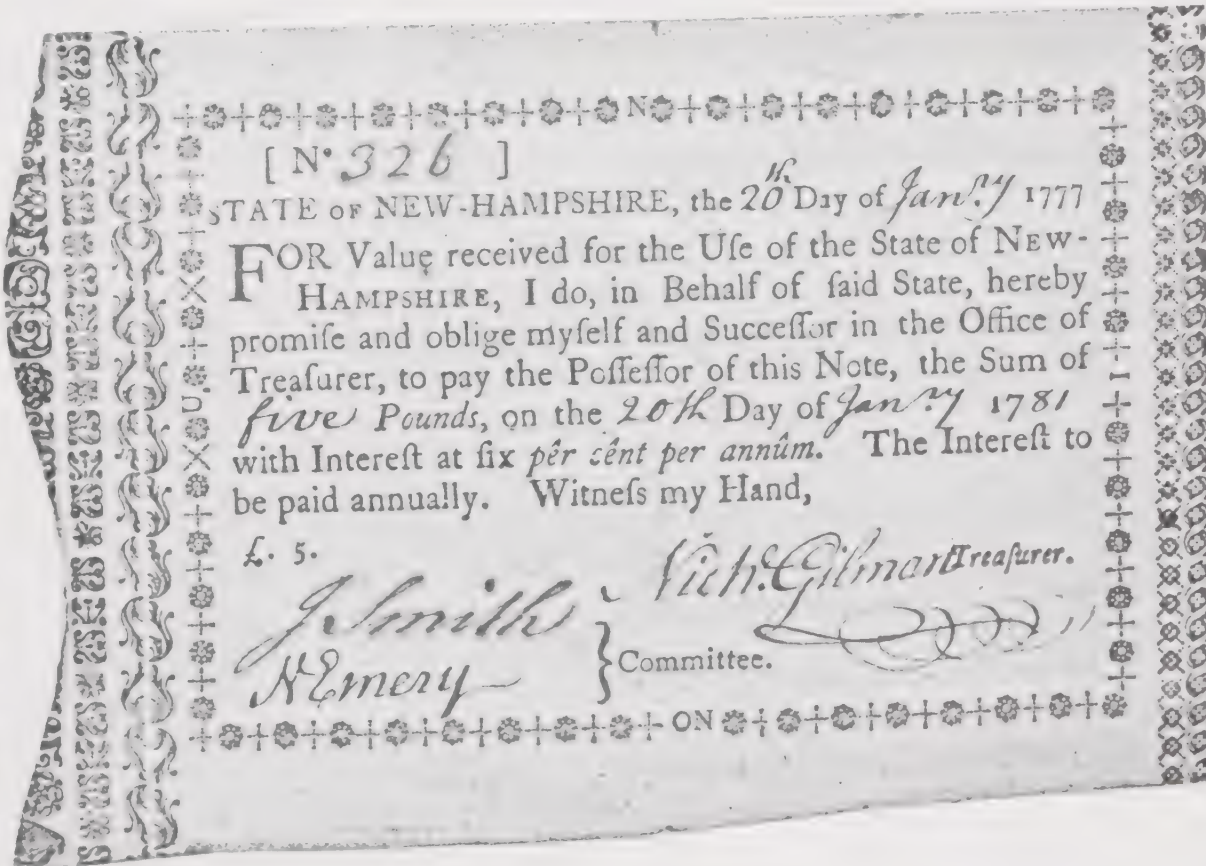 N
[ Nº 326 ]
STATE OF NEW-HAMPSHIRE, the 20th Day of Janry 1777
FOR Value received for the Uſe of the State of NEW-
HAMPSHIRE, I do, in Behalf of ſaid State, hereby
promiſe and oblige myſelf and Succeſſor in the Office of
Treaſurer, to pay the Poſſeſſor of this Note, the Sum of
five Pounds, on the 20th Day of Janry 1781
with Intereſt at ſix pêr cênt per annûm. The Intereſt to
be paid annually. Witneſs my Hand,
£. 5.
Nichs. Gilman Treaſurer.
J Smith
N Emery
Committee.
U
I
ON